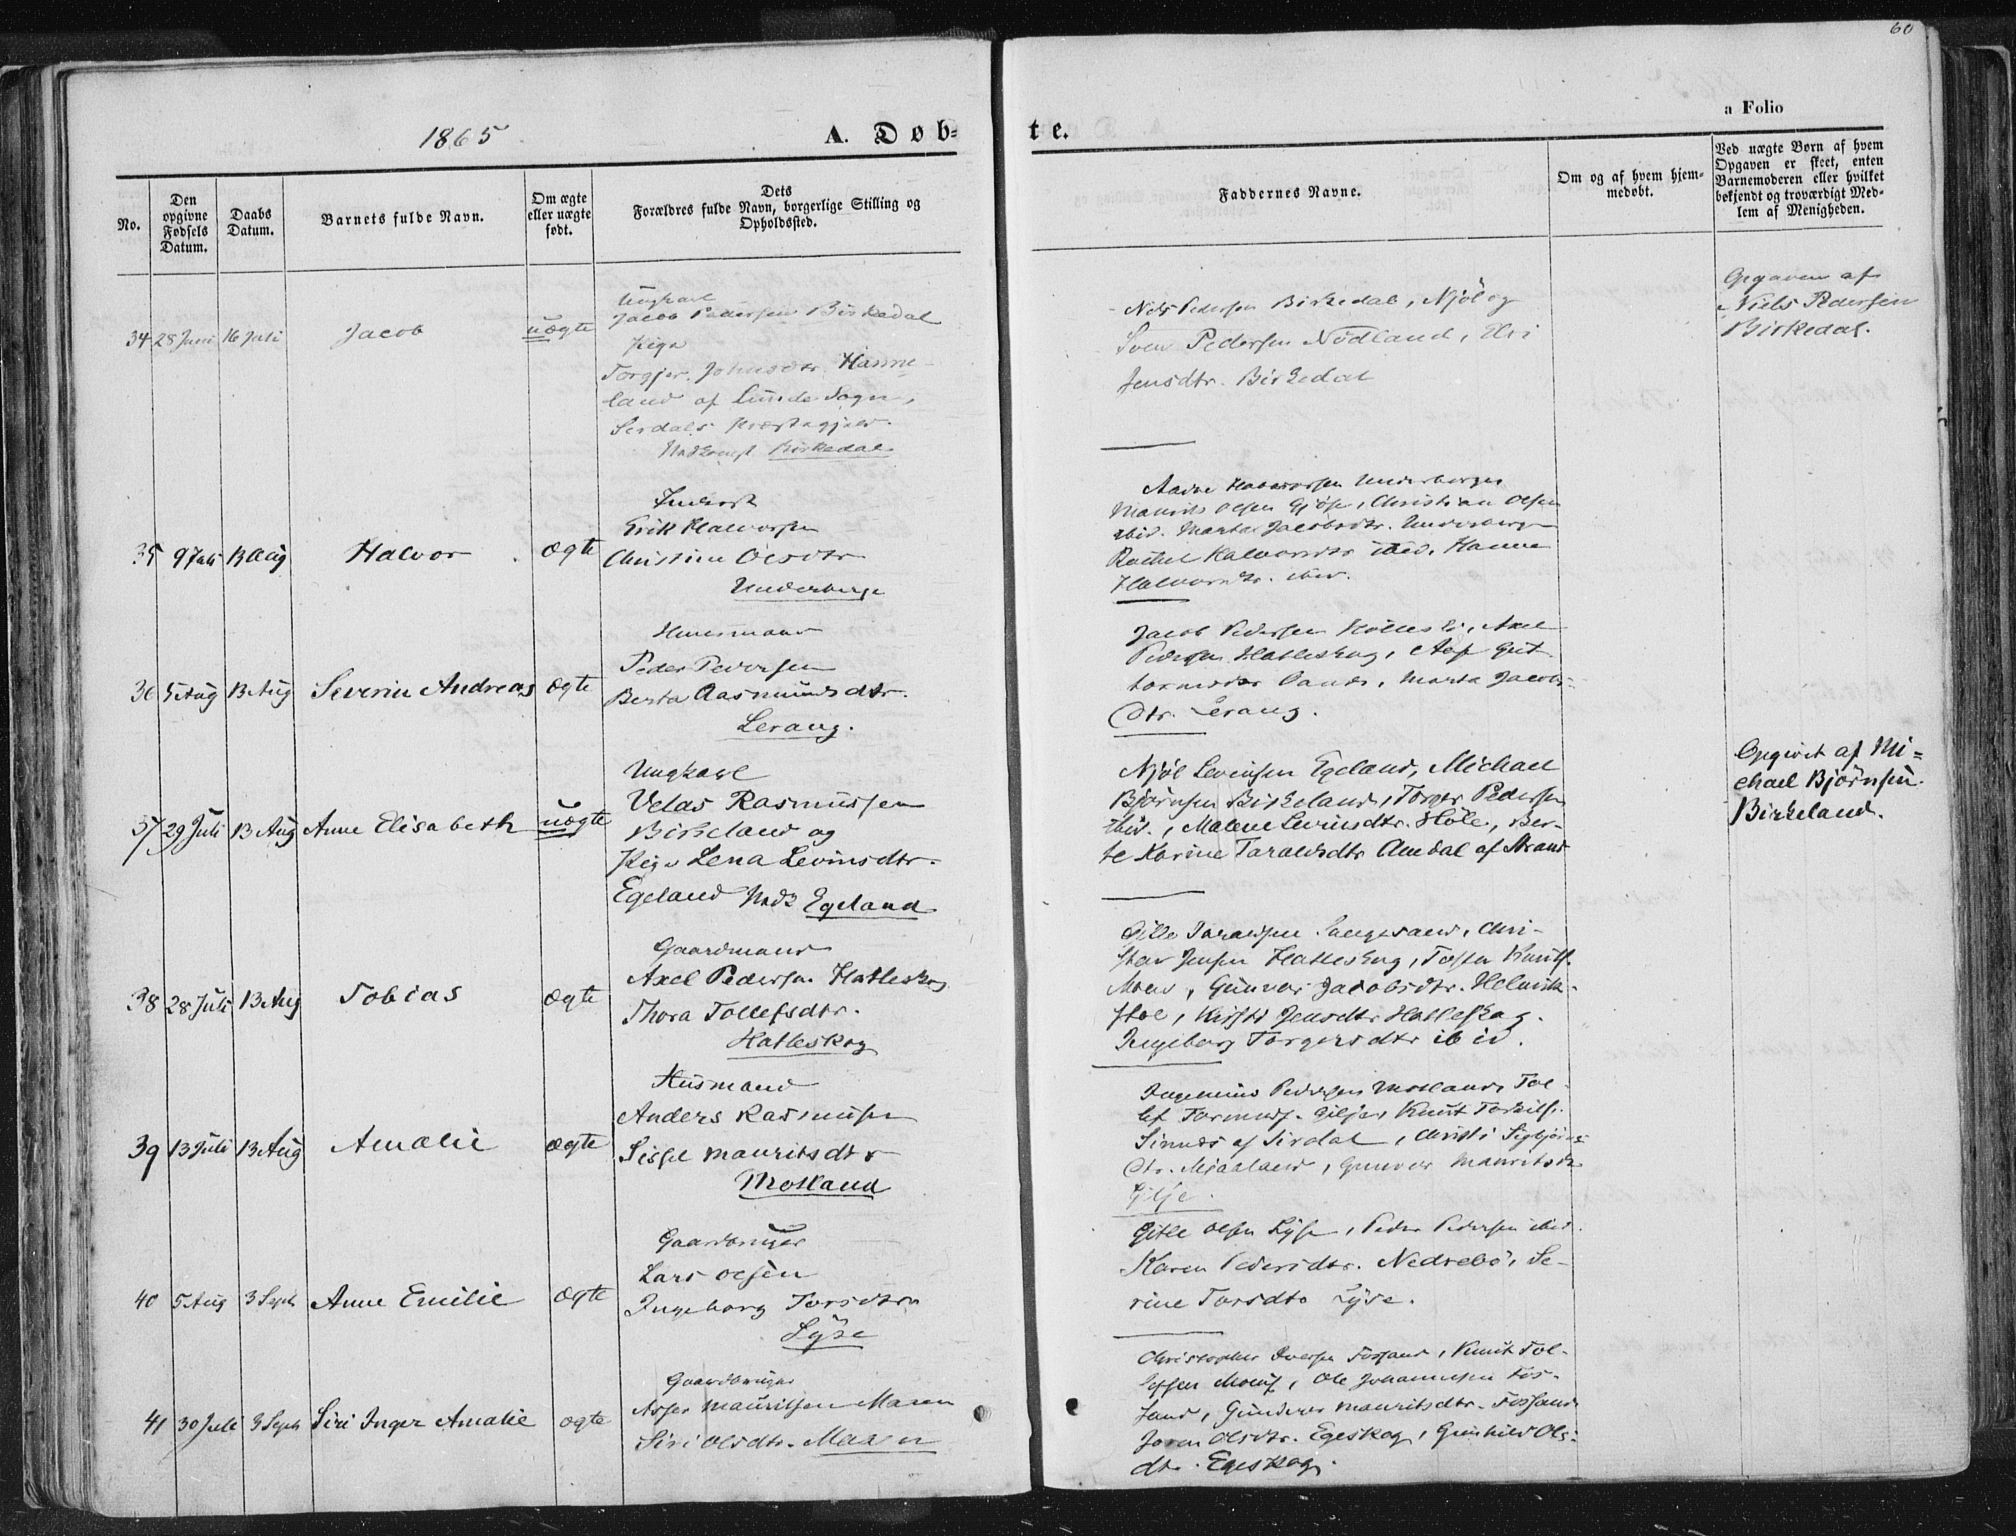 60
1865
A. Døb=
te.
a Folio
No.
Den opgivne Fødsels Datum.
Daabs Datum.
Barnets fulde Navn.
Om ægte eller uægte født.
Dets
Forældres fulde Navn, borgerlige Stilling og
Opholdssted.
Faddernes Navne.
Om og af hvem hjem-
medøbt.
Ved uægte Børn af hvem
Opgaven er skeet, enten
Barnemoderen eller hvilket
bekjendt og troværdigt Med-
lem af Menigheden.
34 28 Juni 16 Juli Jacob uægte
Ungkarl
Jacob Pedersen Birkedal
Pige
Torgjer. Johnsdtr. Hanne-
land af Lunde Sogn,
Præstegjeld.
Birkedal
Niels Pedersen Birkedal, Njöl og
Sven Pedersen Nödland,
Jensdtr. Birkedal
Opgaven af
Niels Pedersen
Birkedal.
35 9 Juli 13 Aug Halvor ægte
Inderst
Erik Halvorsen
Christine Olsdtr
Underberge
Halvorsen Underberge
Maurits Olsen Gjöse, Christian Olsen
ibid. Marta Jacobsdtr. Underberge
Rachel Halvorsdtr ibid. Hanne
Halvorsdtr. ibid.
36 5 Aug 13 Aug Severin Andreas ægte
Huusmand
Peder Pedersen
Berta Aasmundsdtr.
Lerang.
Jacob Pedersen Kölleli, Axel
Pedersen Hatleskog, Gut
Marta Jacobs-
dtr. Lerang.
37 29 Juli 13 Aug Anne Elisabeth uægte
Ungkarl
Velas Rasmussen
Birkeland og
Pige Lena Levinsdtr.
Egeland Egeland
Njöl Levinsen Egeland, Michael
Björnsen Birkeland, Torger Pedersen
ibid., Malene Levinsdtr. Höle, Ber-
te Karine Taraldsdtr Amdal af Strand
Opgivet af Mi=
chael Björnsen
Birkeland.
38 28 Juli 13 Aug Tobias ægte
Gaardmand
Axel Pedersen Hatleskog
Thora Tollefsdtr.
Hatleskog
Gitle Taraldsen Songesand, Chri-
Jensen Hatleskog, Knuts.
Moen, Gunvor Jacobsdtr. Helmik-
stöl, Kirsti Jensdtr Hatleskog.
Ingeborg Torgersdtr ibid.
39 13 Juli 13 Aug Amalie ægte
Husmand
Anders Rasmusen
Sissel Mauritsdtr
Mosland
Pedersen Mosland, Tol-
lef Gilje, Knut Torkils.
Sinnes af Sirdal, Christi Sigbjörns
dtr. Mjaaland, Gunvor Mauritsdtr
Gilje.
40 5 Aug 3 Septr Anne Emilie ægte
Gaardbruger
Lars Olsen
Ingeborg Torsdtr
Lyse
Gitle Olsen Lyse, Peder Pedersen ibid.
Karen Pedersdtr. Nedrebö, Se-
rine Torsdtr Lyse.
41 30 Juli 3 Septr Siri Inger Amalie ægte
Gaardbruger
Asser Mauritsen Maren
Siri Olsdtr. Maren
Christopher Iversen Fossand, Knut Tol-
lefsen Moen, Ole Johannesen Fos-
sand, Gunder Mauritsdtr. Fossand
Joren Olsdtr. Egeskog, Gunhild Ols-
dtr. Egeskog.